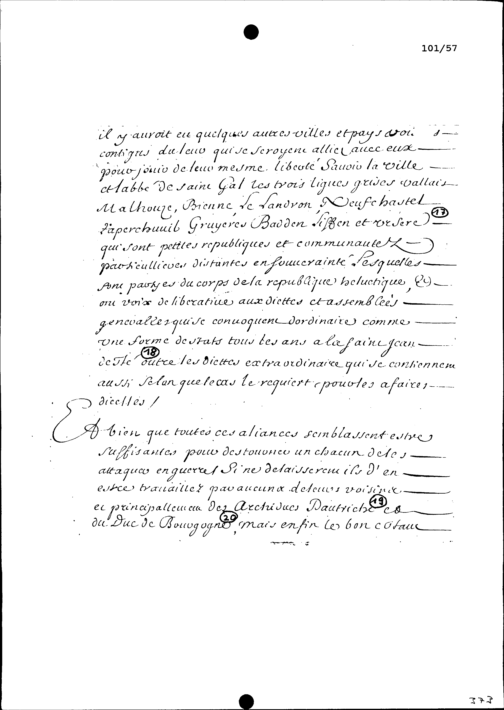 101/57
il y auroit eu quelques autres villes et pays
contigus du leur qui se seroyent alliez avec eux
pour jouir de leur mesme liberté Savoir la ville
et labbé de saint Gal Les trois ligues grises vallais
Malhouze, Bienne Le Landron Neufchastel
Gruyeres Badden et 17
qui sont petites republiques et communautez
particullieres distantes en souverainté Lesquelles
sont partyes du corps de la republique helvetique, et
ont voix deliberative aux diettes et assemblées
generalles qui se convoquent dordinaire comme
une forme destats tous les ans a la saint Jean
18 outre les diettes extraordinaire qui se contiennent
aussi selon que le cas le requiert pour les afaires
dicelles /
bien que toutes ces aliances semblassent estre
suffisantes pour destourner un chacun de les
attaquer en guerre Si ne delaisserent ils d'en
estre travaillez par aucuns de leurs voisins
et principallement Des Archiducs Dautriche 19 et
du Duc de Bourgogne 20, mais enfin les bon
373